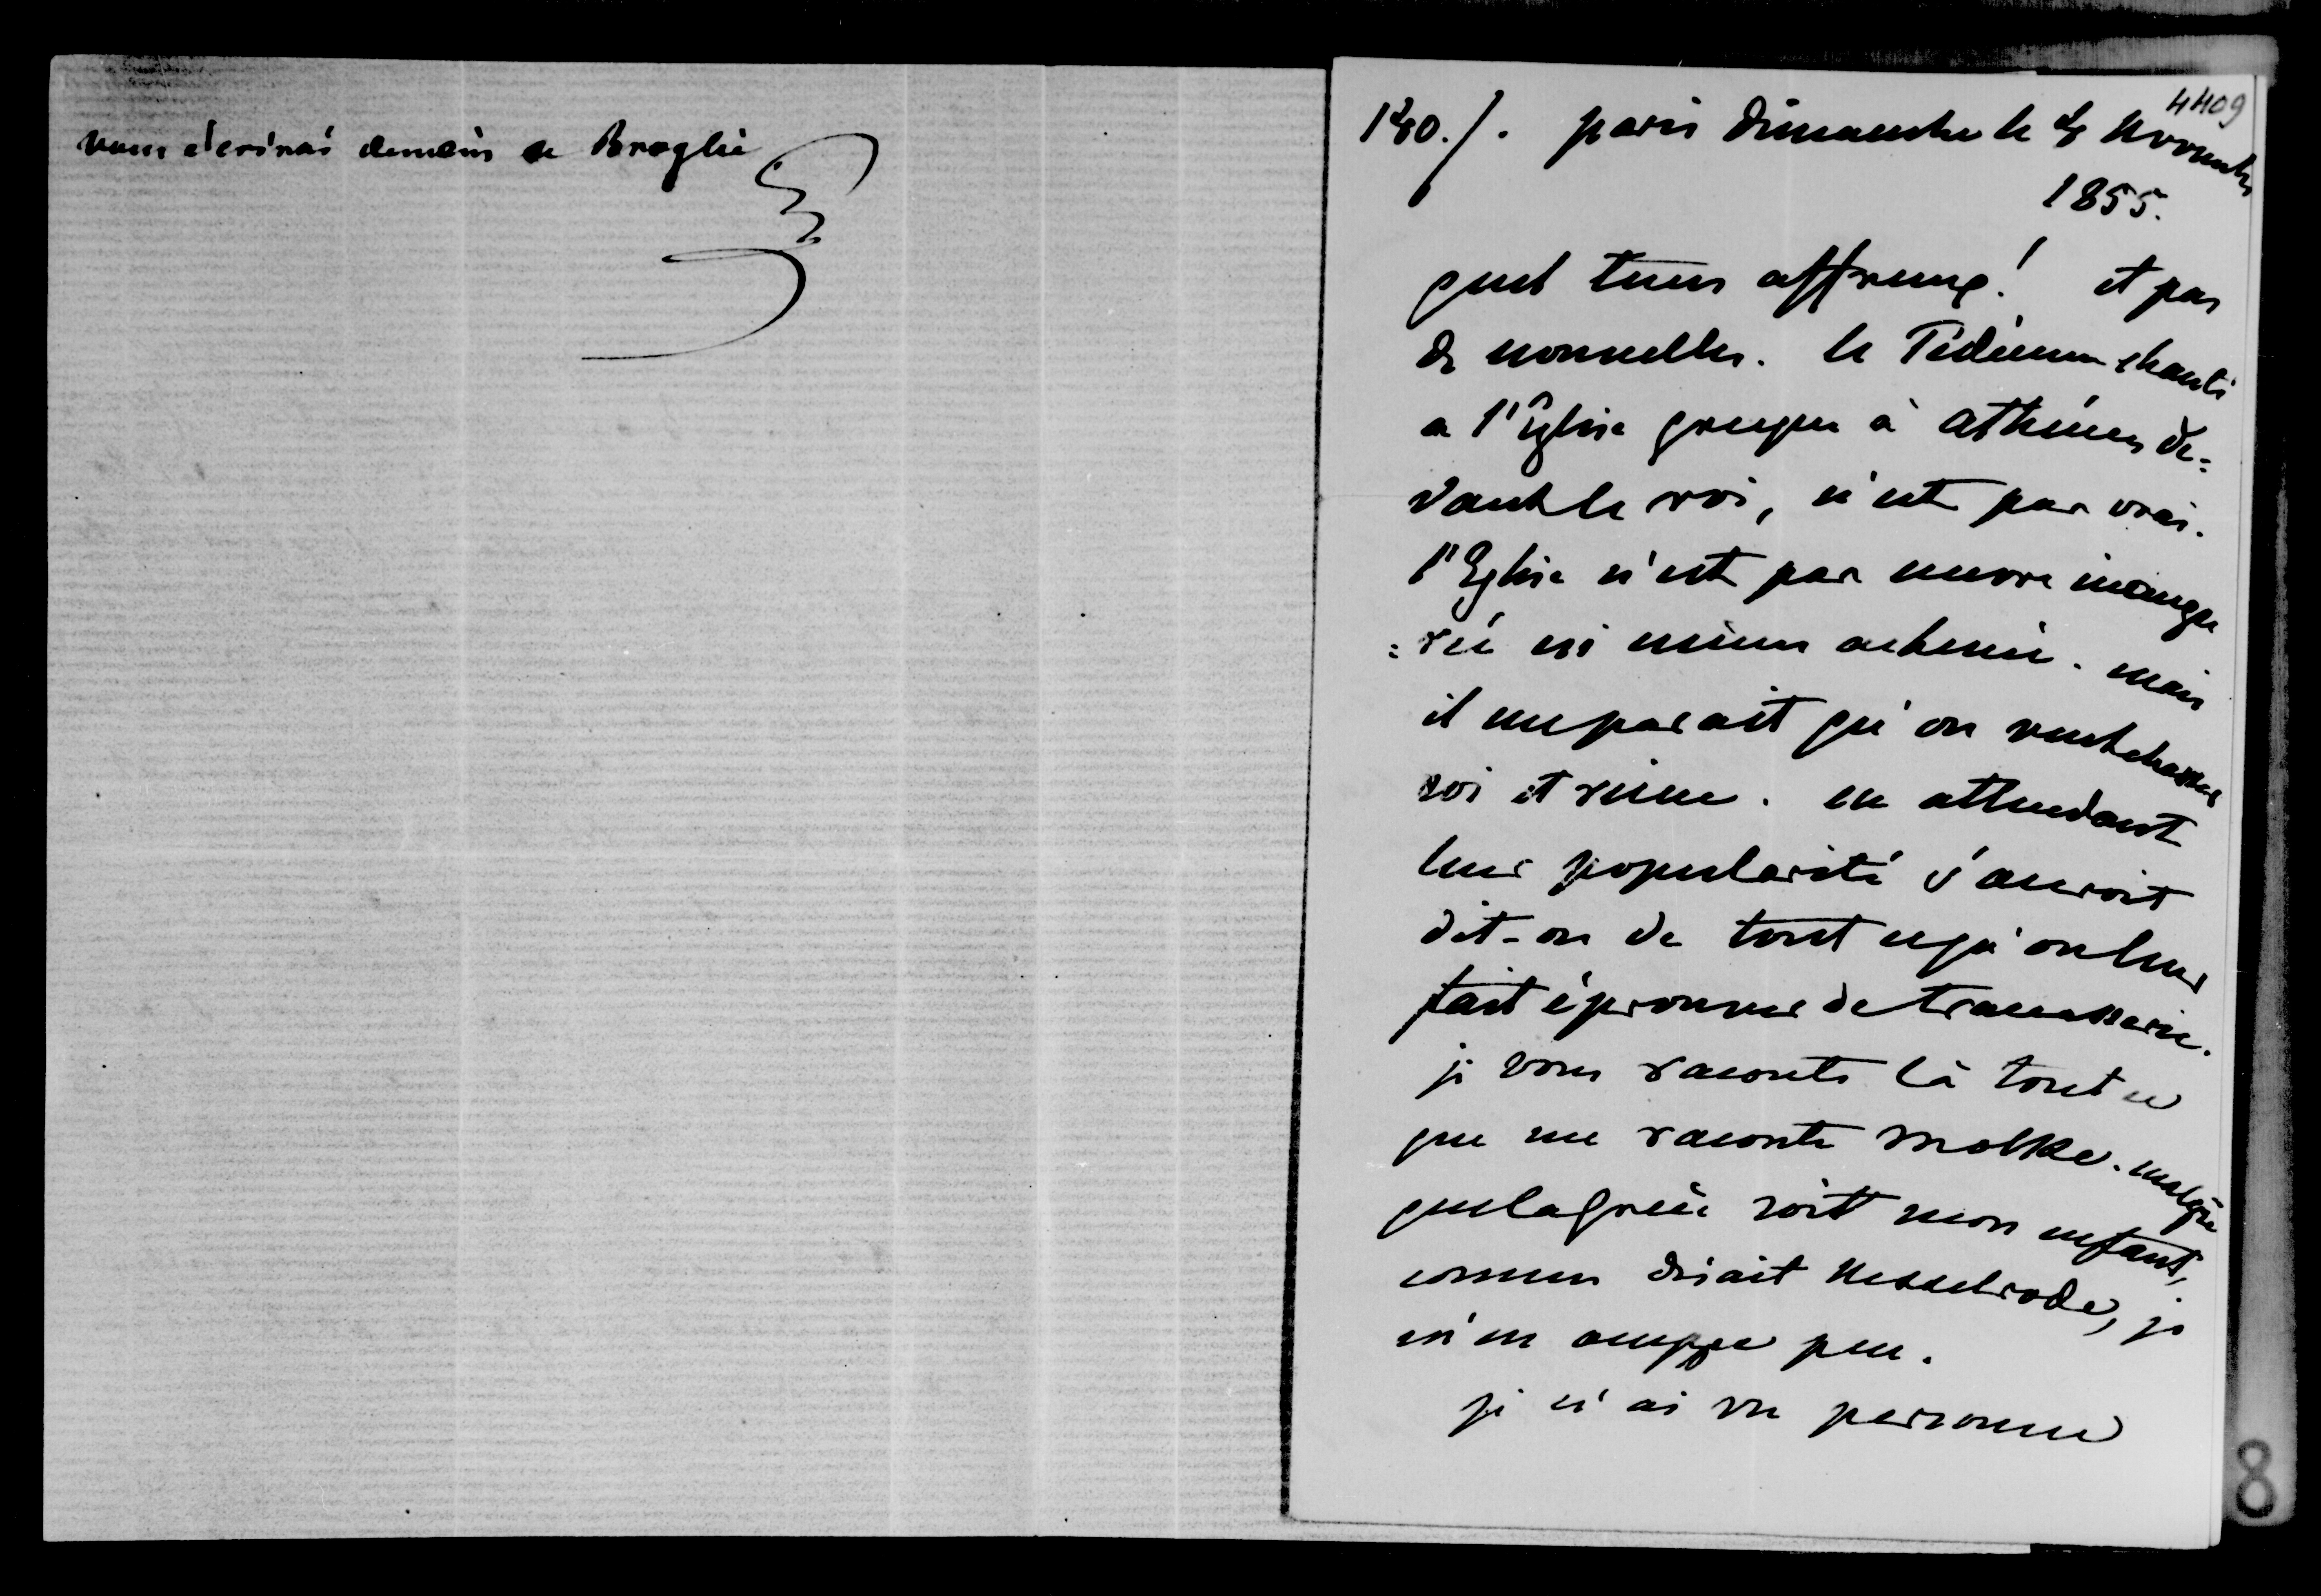 vous écrirai demain de Broglie
4409
140./. paris Dimanche le 4 Novembre
1855.
quel tems affreux ! et pas
de nouvelles. le Tédéum chanté
a l'Eglise greque à Athénes de=
vant le roi, n'est pas vrai.
l'Eglise n'est pas encore inaugu
=rée ni même achevée. mais
il me parait qu'on veut chasser
roi et reine. en attendant
leur popularité s'accroit
dit-on de tout ce qu'on leur
fait éprouver de tracasserie.
je vous raconte là tout ce
que me raconte Molke. malgré
que la grèce soit mon enfant,
comme disait Nesselrode, je
m'en occuppe peu.
je n'ai vu personne
8